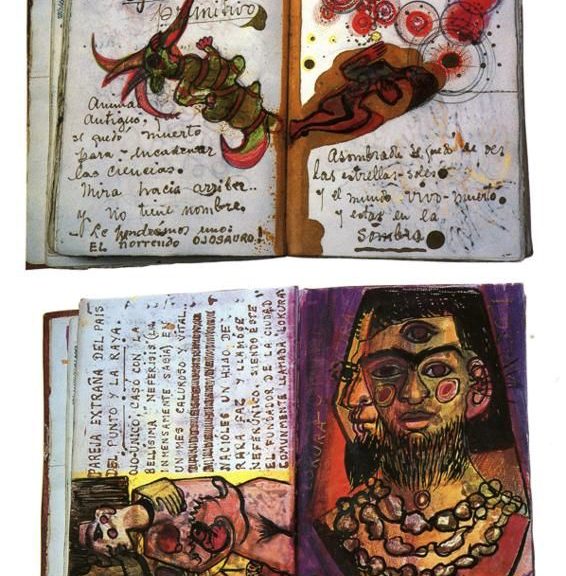 primitivo
Animal
Antiguo:
se quedó muerto
para encadenar
las ciencias.
Mira hacia arriba..
y No tiene nombre.
-Le pondremos uno:
EL horrendo OJOSAURO!
Asombrada se quedó de ver
las estrellas-soles
y el mundo vivo-muerto
y estar en la
sombra
PAREJA EXTRAÑA DEL PAIS
DEL PUNTO Y LA RAYA.
OJO-UNICO CASÓ CON LA
BELLISIMA NEFERISIS (LA
INMENSAMENTE SABIA) EN
UN MES CALUROSO Y VITAL.
NACIOLES UN HIJO DE
RARA FAZ Y LLAMOSE
NEFERÚNICO, SIENDO ESTE
EL FUNDADOR DE LA CIUDAD
COMUNMENTE LLAMADA LOKURA.
LOKURA